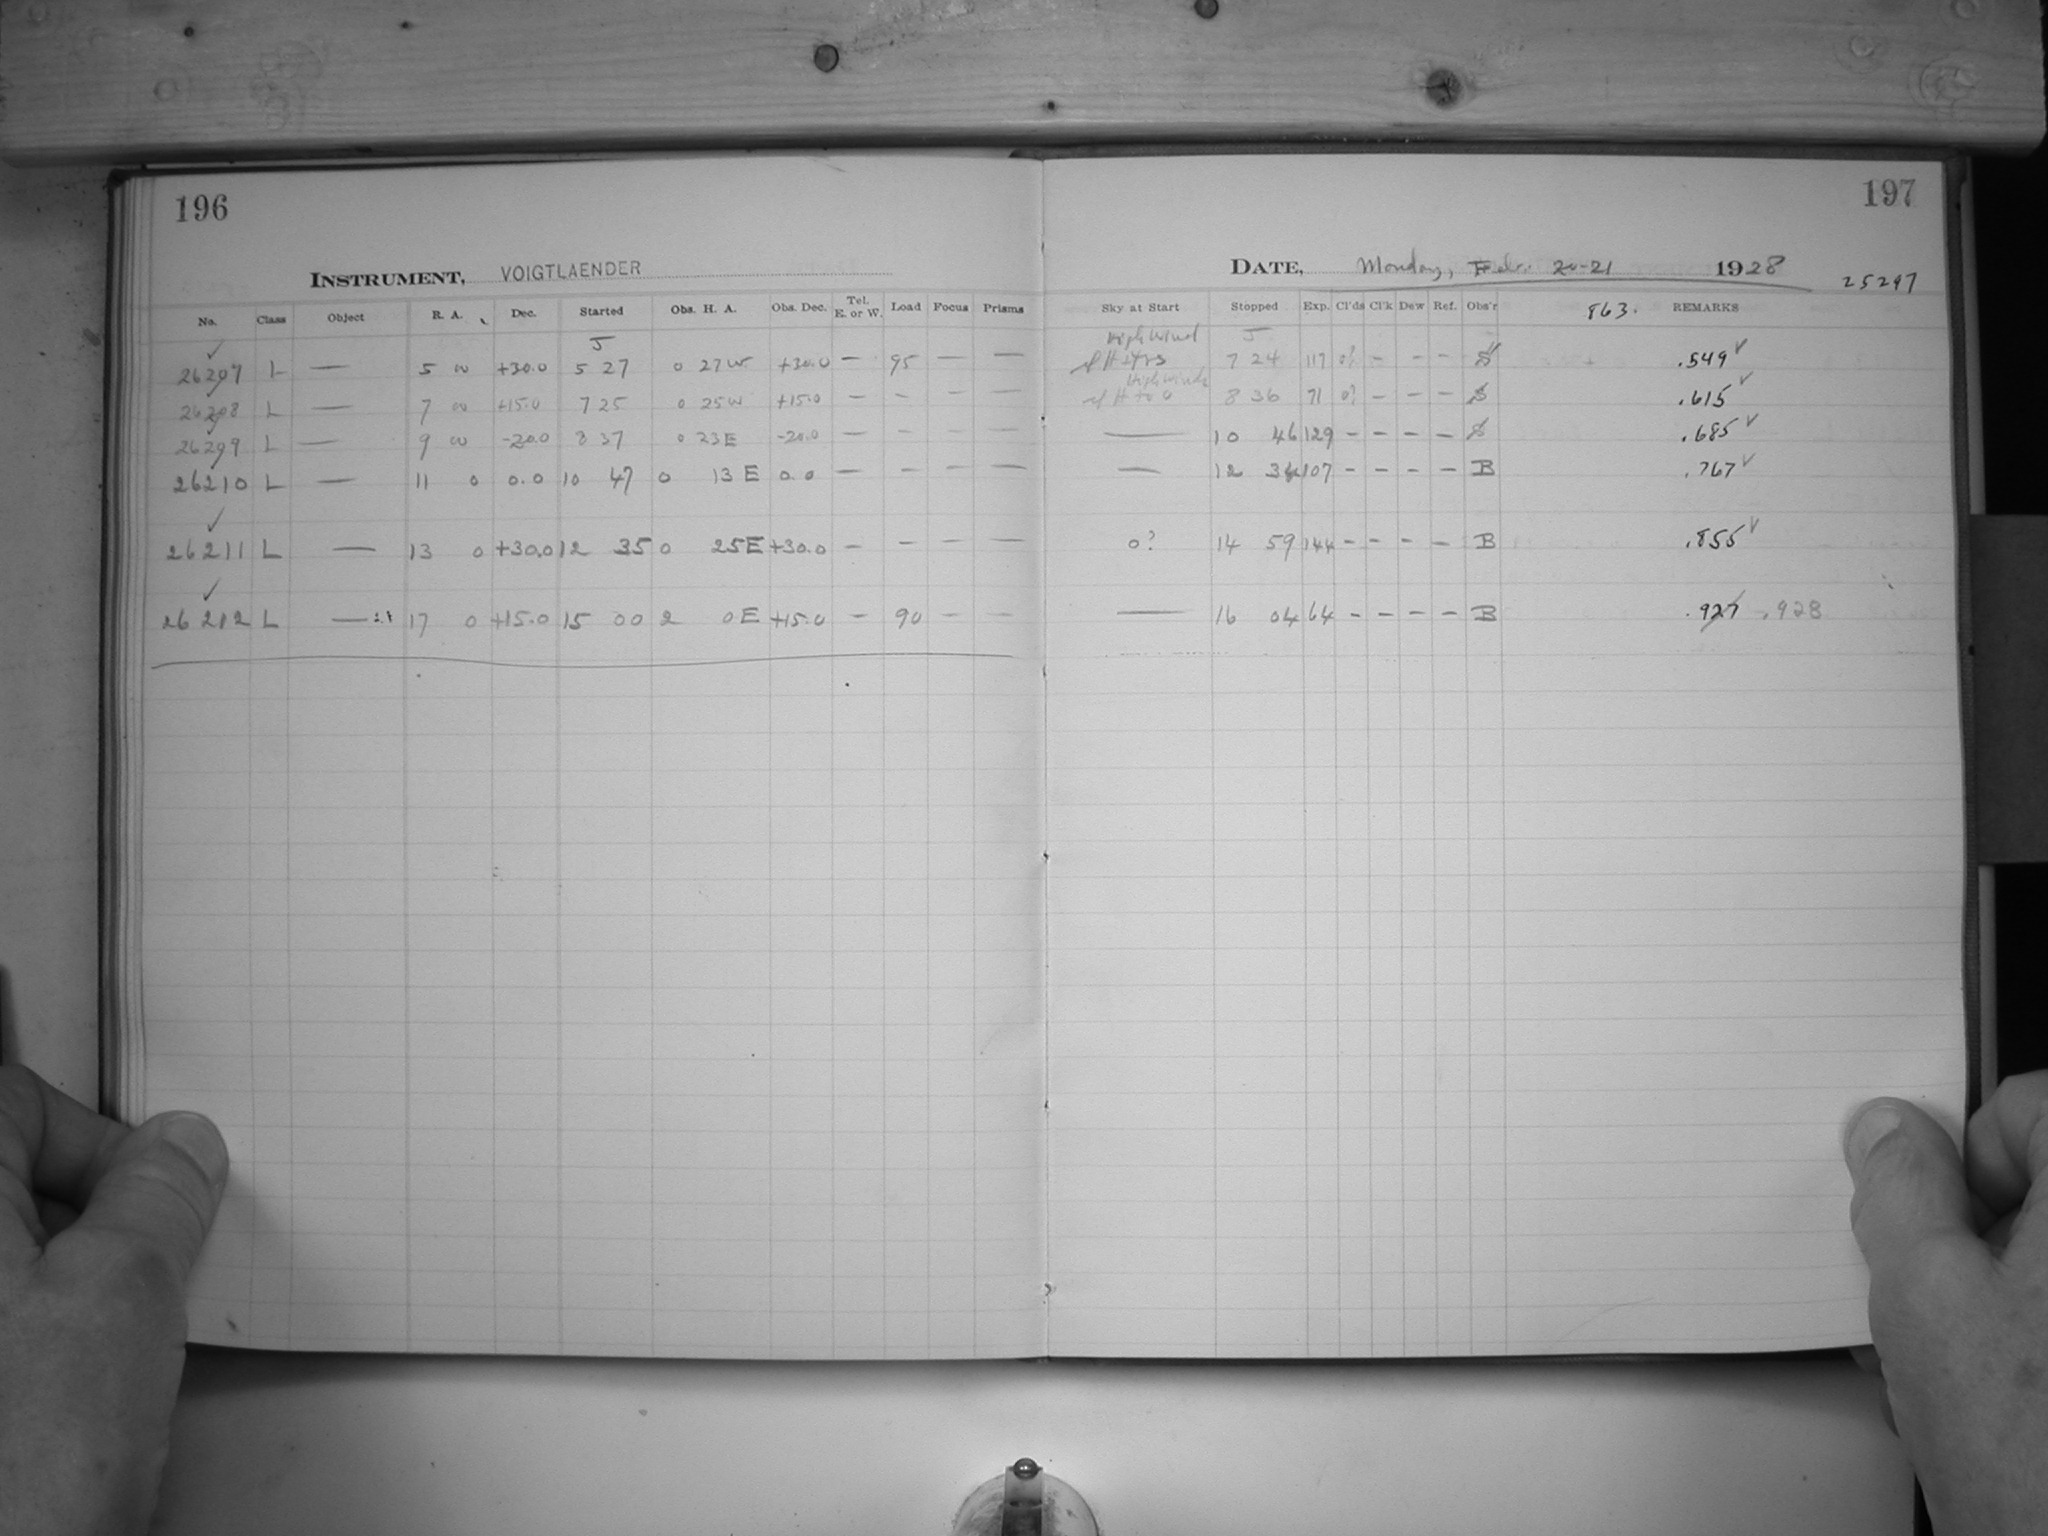 196
INSTRUMENT, VOIGTLAENDER
No. Class Object R. A. Dec. Started Obs. H. A. Obs. Dec. Tel. E. or W. Load Focus Prisms
✓ 26207 L — 5 00 +30.0 5 27 0 27W +30.0 — 95 — —
✓ 26208 L — 7 00 +15.0 7 25 0 25W +15.0 — - — —
✓ 26209 L — 9 00 -20.0 8 37 0 23E -20.0 — — — —
✓ 26210 L — 11 0 0.0 10 47 0 13E 0.0 — — — —
✓ 26211 L — 13 0 +30.0 12 35 0 25E +30.0 — — — —
✓ 26212 L — 17 0 +15.0 15 00 2 0E +15.0 — 90 — —
197
DATE, Monday, Febr. 20-21 1928
25297
Sky at Start Stopped Exp. Cl'ds Cl'k Dew Ref. Obs'r 863. REMARKS
High Wind
7 24 117 0? - - - S .549 ✓
High winds
8 36 71 0? - - - S .615 ✓
— 10 46 129 - - - - S .685 ✓
— 12 34 107 - - - - B .767 ✓
0? 14 59 144 - - - - B .855 ✓
— 16 04 64 - - - - B .927 .928